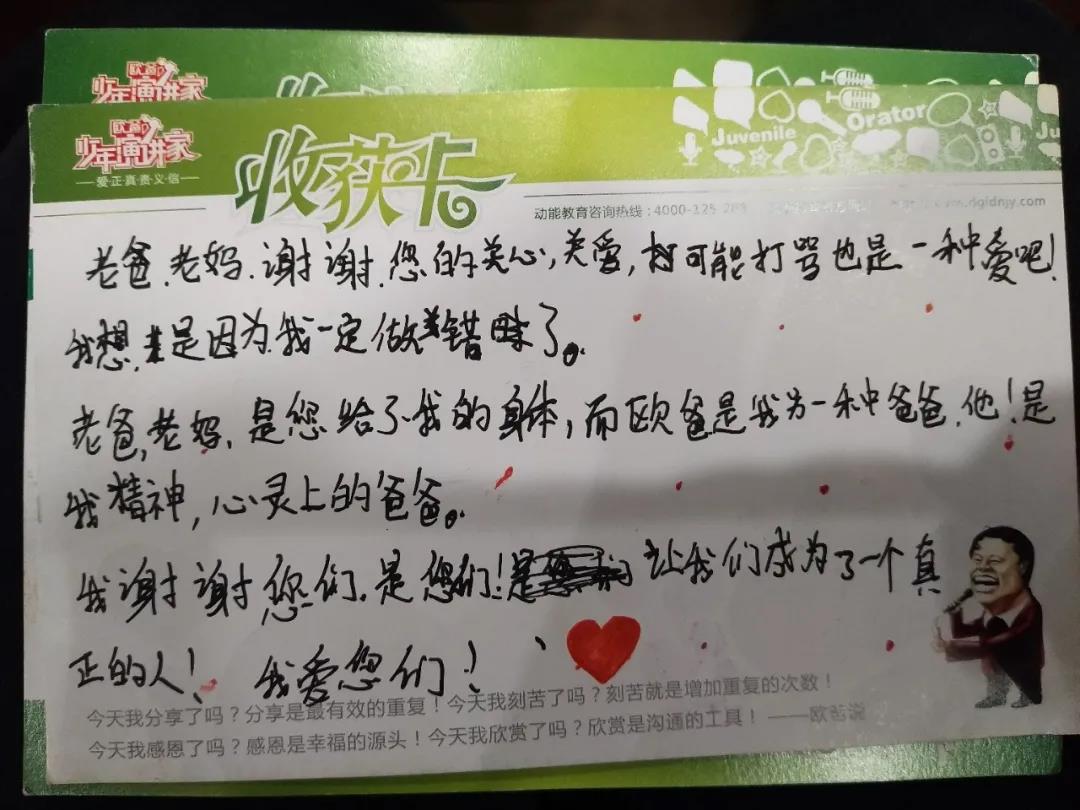 欧爸
少年演讲家
欧爸
少年演讲家
爱·正·真·责·义·信
收获卡
Juvenile
Orator
Ju
动能教育咨询热线:4000-125-
老爸.老妈.谢谢.您的关心,关爱,可能打骂也是一种爱吧!
我想.是因为.我一定做错了。
老爸,老妈.是您给了我的身体,而欧爸是我另一种爸爸.他!是
我精神,心灵上的爸爸。
我谢谢您们.是您们!让我们成为了一个真
正的人! 我爱您们!
今天我分享了吗?分享是最有效的重复!今天我刻苦了吗?刻苦就是增加重复的次数!
今天我感恩了吗?感恩是幸福的源头!今天我欣赏了吗?欣赏是沟通的工具! ——欧爸说